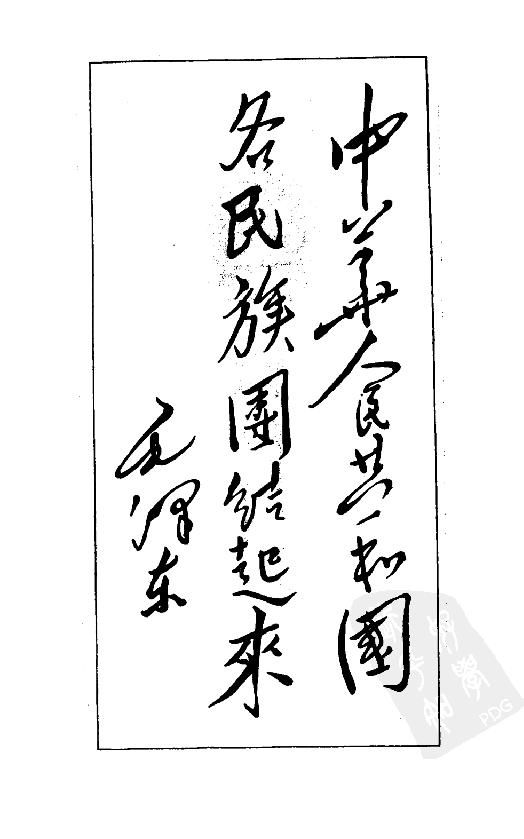 中华人民共和國
各民族團结起來
毛泽东
PDG